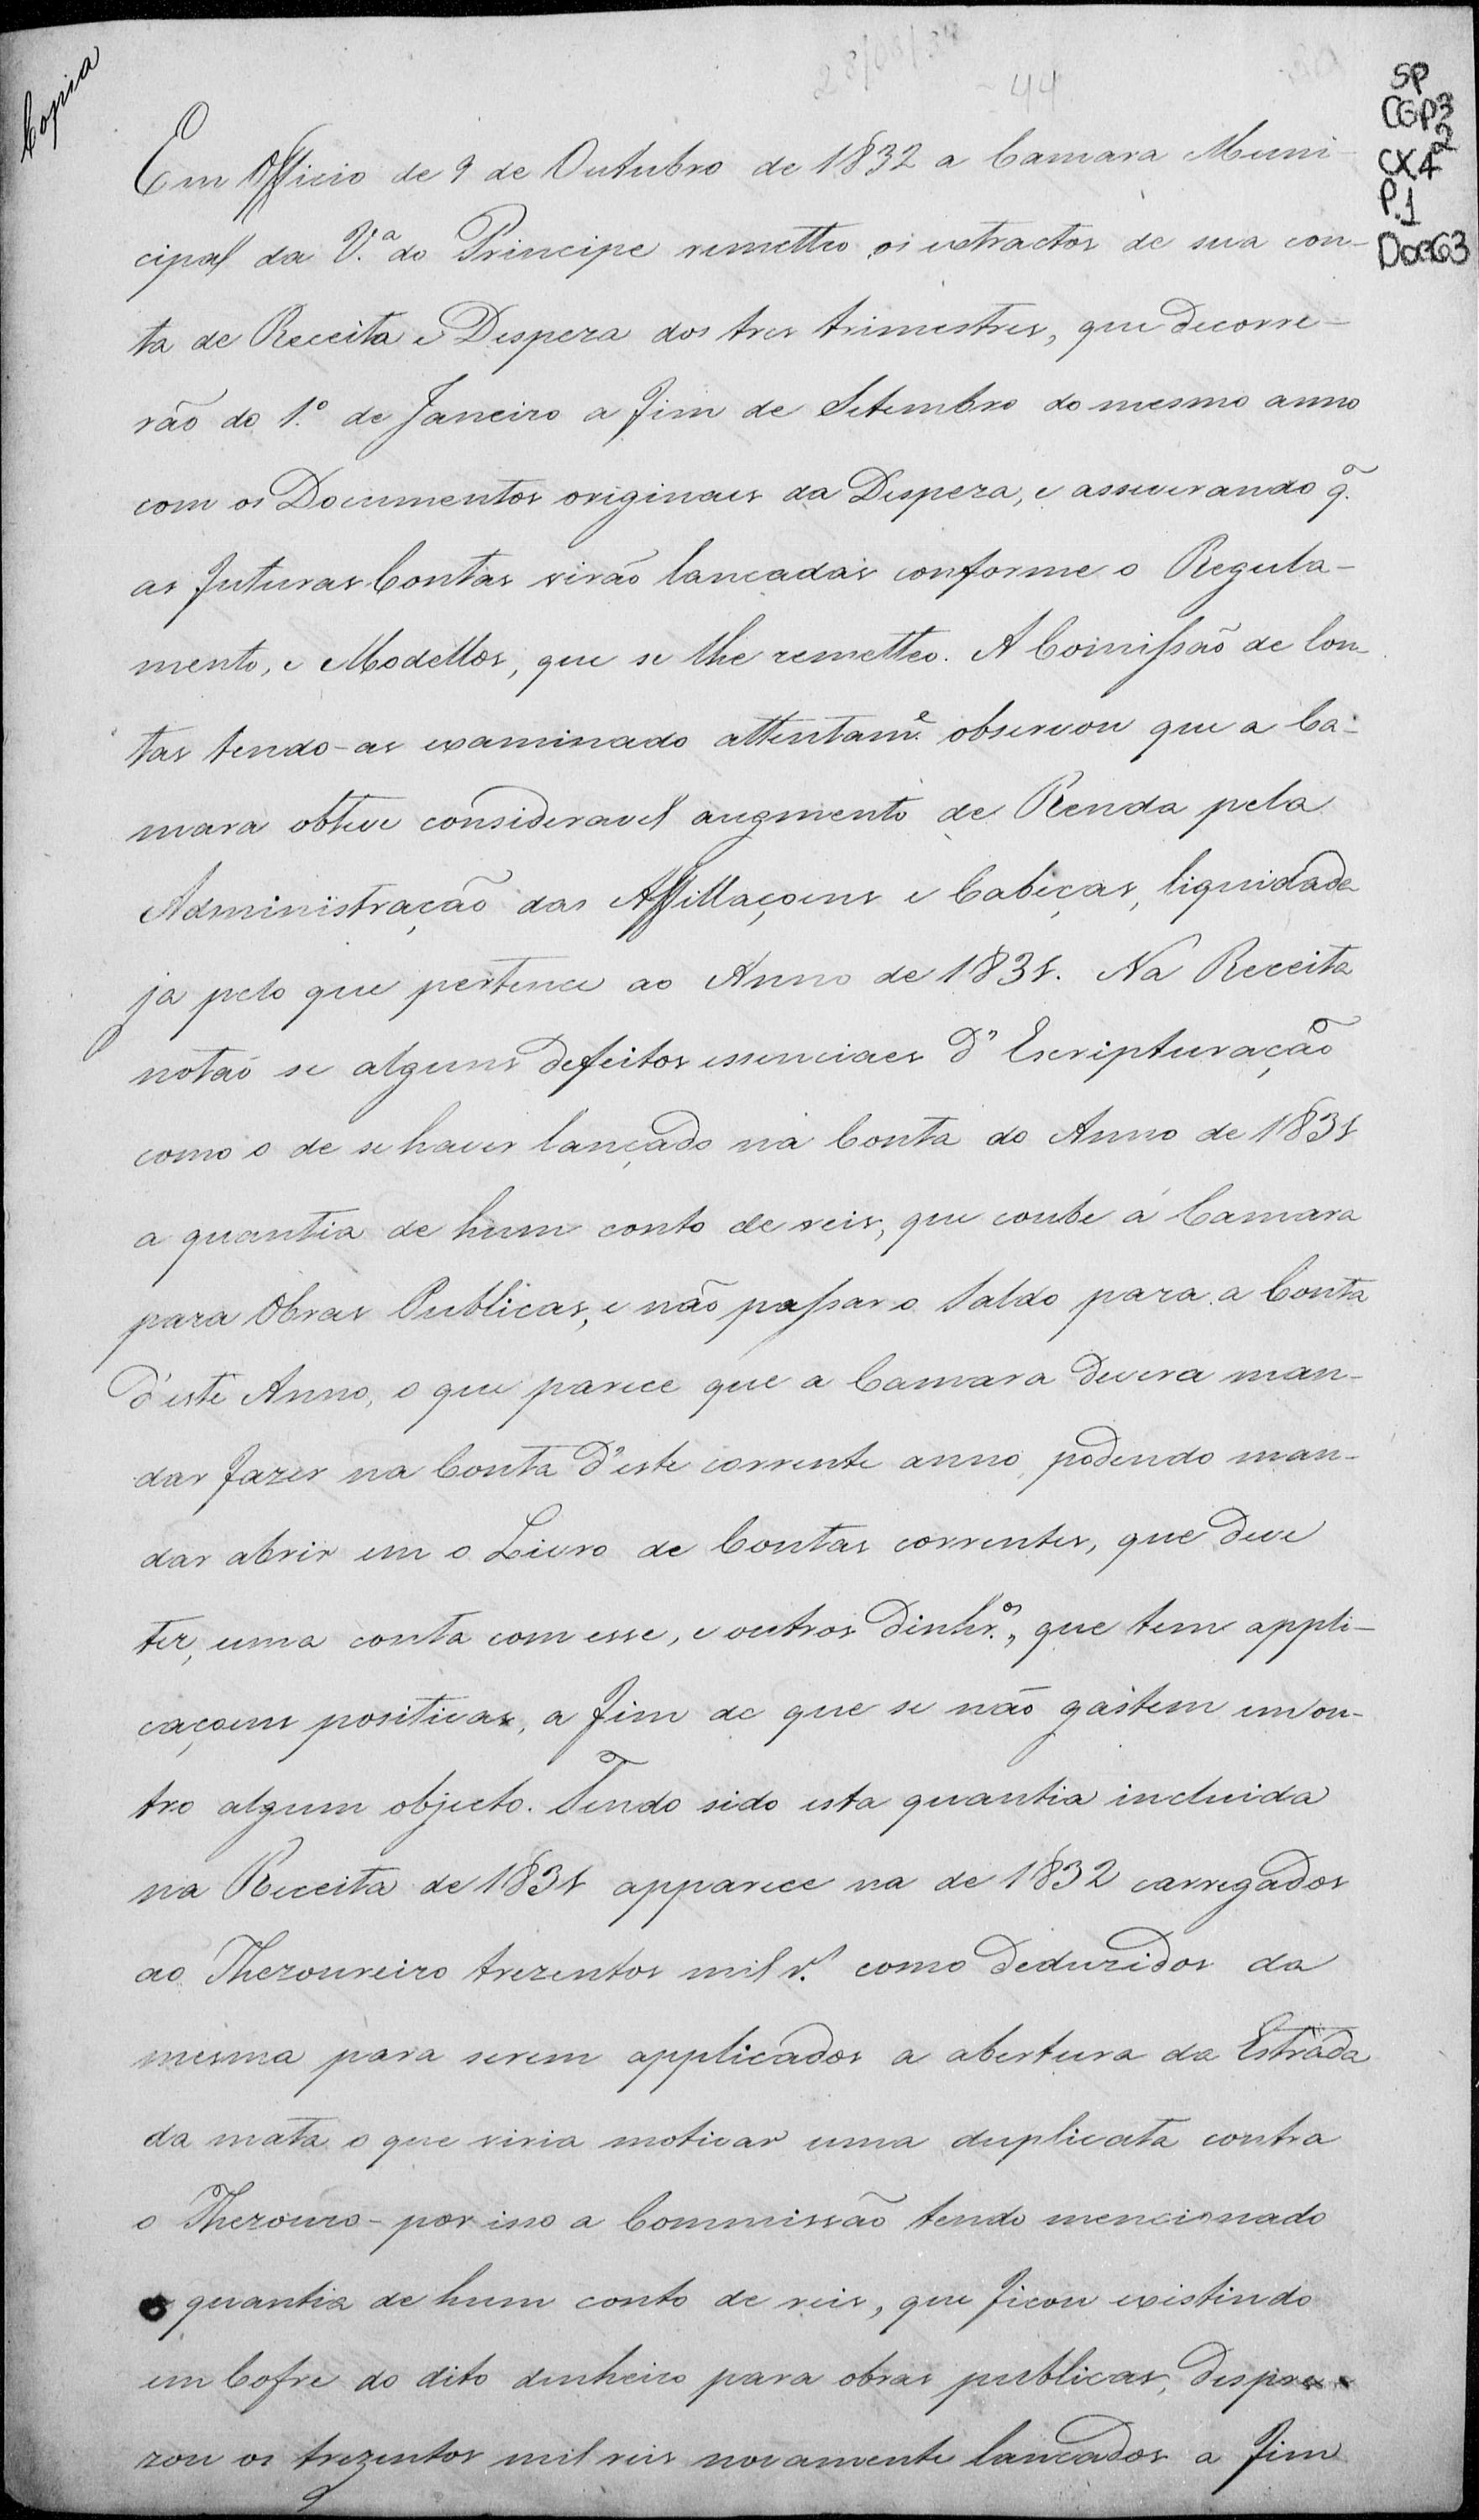 Copia
44
SP
CGP3
2
CX4
P.1
Doc63
Em Officio de 9 de Outubro de 1832 a Camara Muni-
cipal da V.ª do Principe remetteo os extractos de sua con-
ta de Receita e Despeza dos tres trimestres, que decorre-
rão do 1.º de Janeiro a fim de Setembro do mesmo anno
com os Documentos originaes da Despeza, e asseverando q̃.
as futuras Contas virão lancadas conforme o Regula-
mento, e Modellos, que se lhe remetteo. A Comissão de Con-
tas tendo-as examinado attentam.e observou que a Ca-
mara obteve consideravel augmento de Renda pela
Administração das Affillaçoens e Cabeças, liquidada
ja pelo que pertence ao Anno de 1831. Na Receita
notão se alguns defeitos essenciaes d'Escripturação
como o de se haver lançado na Conta do Anno de 1831
a quantia de hum conto de reis, que coube á Camara
para Obras Publicas, e não passar o Saldo para a Conta
d'este Anno, o que parece que a Camara deverá man-
dar fazer na Conta d'este corrente anno, podendo man-
dar abrir em o Livro de Contas correntes, que deve
ter, uma conta com esse, e outros dinhr.os, que tem appli-
caçoens positivas, a fim de que se não gastem em ou-
tro algum objecto. Tendo sido esta quantia incluida
na Receita de 1831 apparece na de 1832 carregados
ao Thezoureiro trezentos mil r.s como deduzidos da
mesma para serem applicados a abertura da Estrada
da mata o que viria motivar uma duplicata contra
o Thezouro - por isso a Commissão tendo mencionado
a quantia de hum conto de reis, que ficou existindo
em Cofre do dito dinheiro para obras publicas, despre-
zou os trezentos mil reis novamente lancados a fim